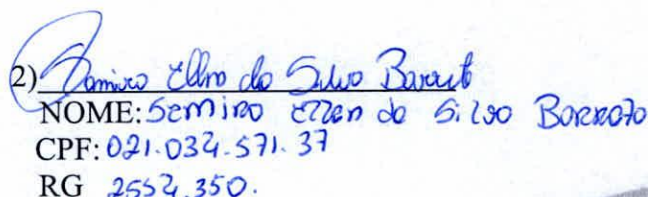 2) Samira Ellen da Silva Barreto
NOME: Samira Ellen da Silva Barreto
CPF: 021.034.571.37
RG 2552.350.